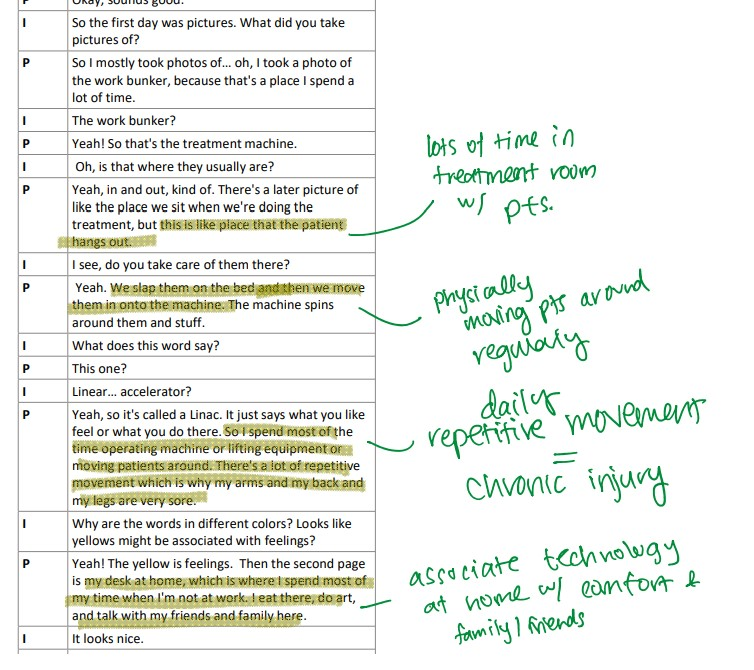 P Okay, sounds good.
I So the first day was pictures. What did you take
pictures of?
P So I mostly took photos of... oh, I took a photo of
the work bunker, because that's a place I spend a
lot of time.
I The work bunker?
P Yeah! So that's the treatment machine.
I Oh, is that where they usually are?
P Yeah, in and out, kind of. There's a later picture of
like the place we sit when we're doing the
treatment, but this is like place that the patient
hangs out.
lots of time in
treatment room
w/ pts.
I I see, do you take care of them there?
P Yeah. We slap them on the bed and then we move
them in onto the machine. The machine spins
around them and stuff.
physically
moving pts around
regularly
I What does this word say?
P This one?
I Linear... accelerator?
P Yeah, so it's called a Linac. It just says what you like
feel or what you do there. So I spend most of the
time operating machine or lifting equipment or
moving patients around. There's a lot of repetitive
movement which is why my arms and my back and
my legs are very sore.
daily
repetitive movement
=
chronic injury
I Why are the words in different colors? Looks like
yellows might be associated with feelings?
P Yeah! The yellow is feelings. Then the second page
is my desk at home, which is where I spend most of
my time when I'm not at work. I eat there, do art,
and talk with my friends and family here.
associate technology
at home w/ comfort &
family/friends
I It looks nice.